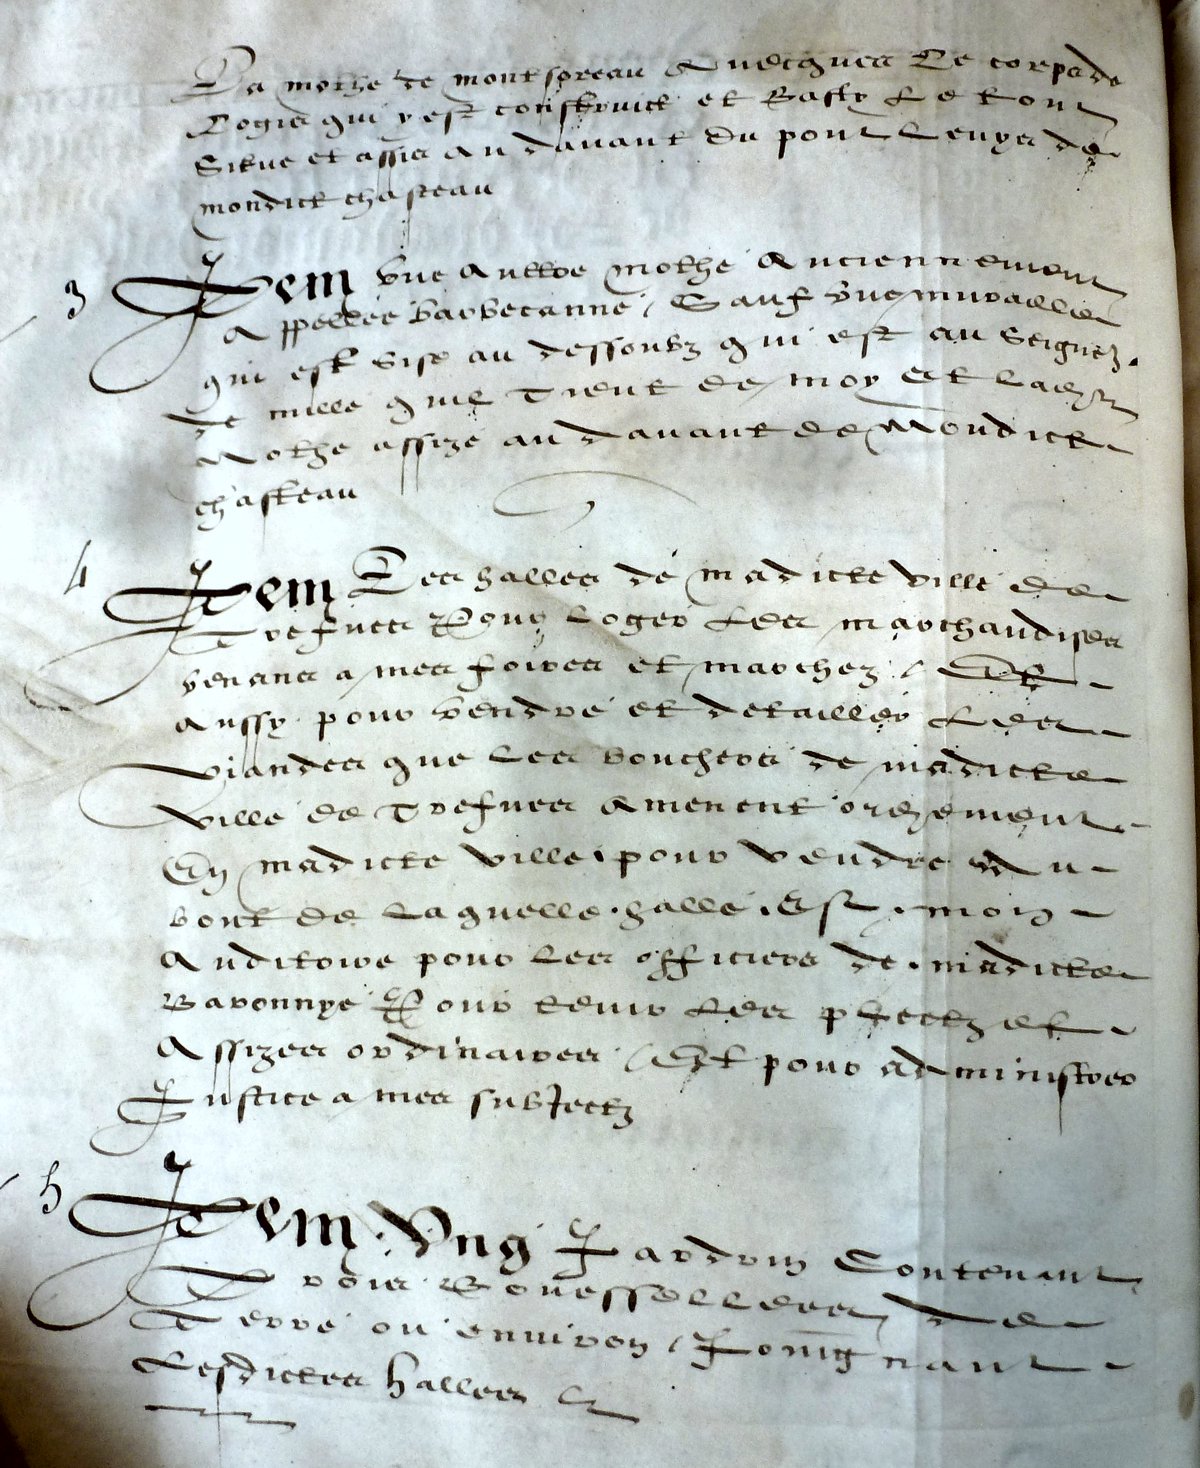 La mothe de montsoreau Avecques Le corps de
Logis qui y est construict et Basty Le tout
Situe et assis au davant du pont Levys de
mondict chasteau
3 Item une aultre mothe Anciennement
Appellee barbecanne / Sauf une muraille
qui est sise au dessoubz qui est au Seigneur
de mille quil Tient de moy Et ladicte
Mothe assize au davant de Mondict
chasteau
4 Item Les halles de madicte ville de
Trefves Pour Loger Les marchandises
venans a mes foires et marchez / Et
aussy pour vendre et detailler Les
viandes que Les bouchers de madicte
ville de Trefves Amenent
En madicte ville pour vendre Au
bout de Laquelle halle Est mon
Auditoire pour Les officiers de madicte
Baronnye Pour tenir Les plectz et
Assizes ordinaires / Et pour administrer
Justice a mes subjectz
5 Item Ung Jardrin Contenant
Trois Bouessellees de
Terre ou environ / Joûignant
Lesdictes halles